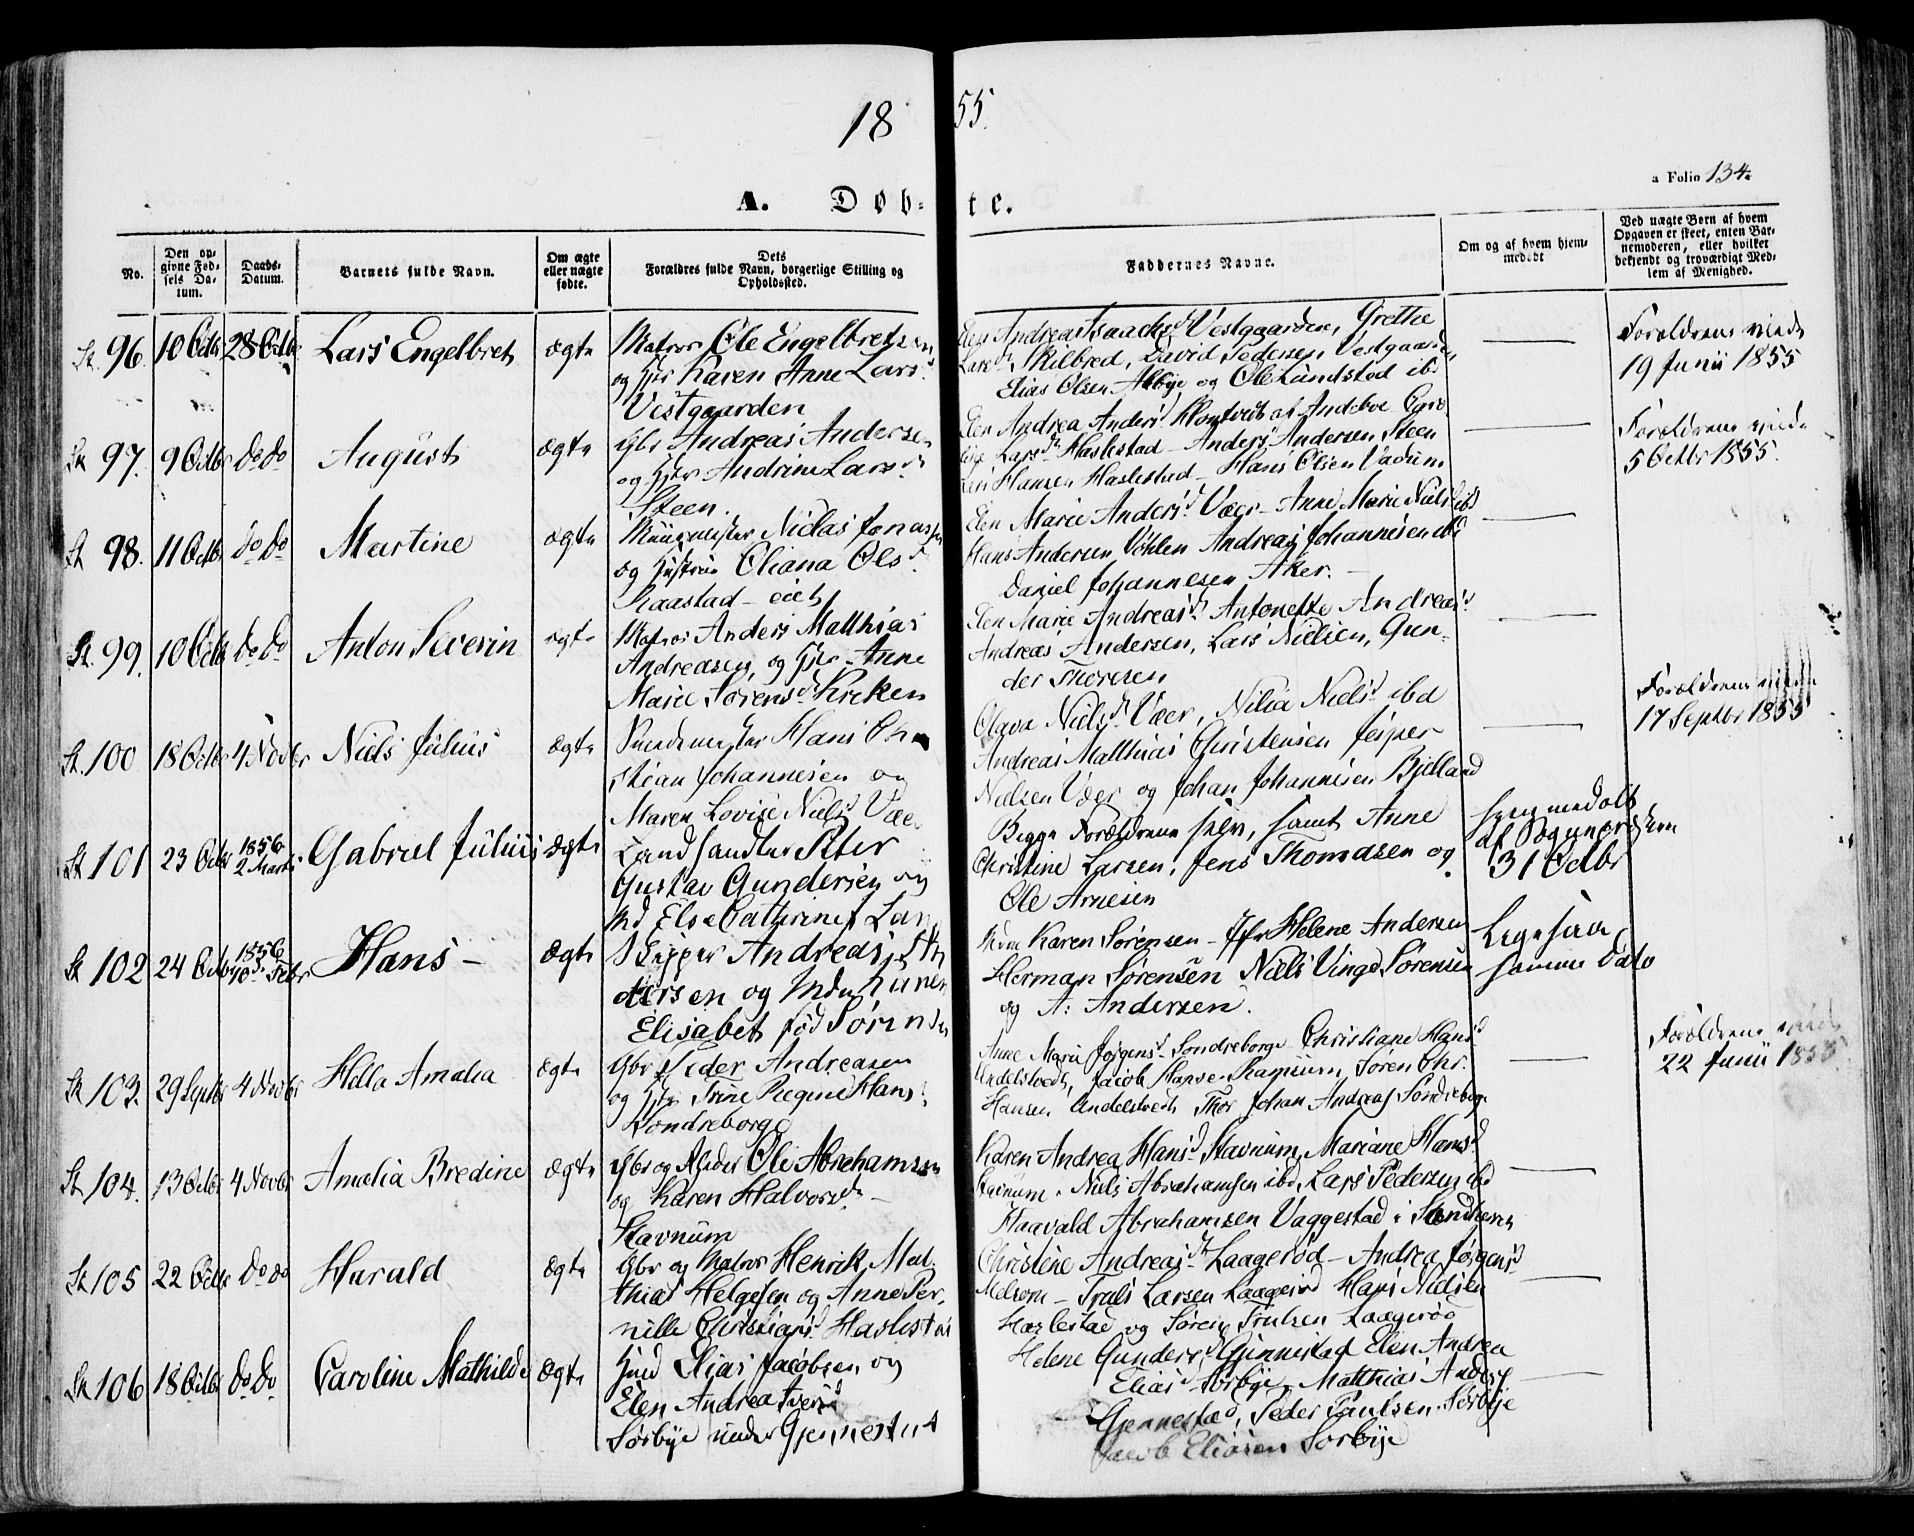 18 55.
a Folio 134.
A. Døb- te.
No.
Den op-
givne Fød-
sels Da-
tum.
Daabs-
Datum.
Barnets fulde Navn.
Om ægte
eller uægte
fødte.
Dets
Forældres fulde Navn, borgerlige Stilling og
Opholdssted.
Faddernes Navne.
Om og af hvem hjem-
medøbt
Ved uægte Børn af hvem
Opgaven er skeet, enten Bar-
nemoderen, eller hvilket
bekjendt og troværdigt Med-
lem af Menighed.
96. 10 Octbr 28 Octbr Lars Engelbret ægte
Matros Ole Engelbretsen
og Hst Karen Anne Larsd
Vestgaarden
Elen Andrea Isaachsd Vestgaarden, Grethe
Larsd Skilbred, David Pedersen Vestgaarden
Elias Olsen Askbye og Ole Lundstad ibd
Forældrene viede
19 Junii 1855
97. 9 Octbr do do August ægte
Gbr Andreas Andersen
og Hst Andrine Larsd
Steen.
Elen Andrea Andersd af Andeboe
Larsd Haslestad - Anders Andersen Steen
Hansen Haslestad - Hans Olsen Vadum
Forældrene viede
5 Octbr 1855.
98. 11 Octbr do do Martine ægte
Muurmester Niclas Jonassen
og Hustrue Oliana Olsd
Raastad - eiet
Elen Marie Andersd Vær - Anne Marie Nielsd ibd
Hans Andersen Vøhlen Andreas Johannesen ibd
Daniel Johannesen Aker. -
99. 10 Octbr do do Anton Severin ægte
Matros Anders Matthias
Andreasen, og Hst Anne
Marie Sørensd Kreken
Elen Marie Andreasd Antonette Andreasd
Andreas Andersen, Lars Nielsen, Gun-
der Thoresen
100 18 Octbr 4 Novbr Niels Julius ægte
Hans Chri
stian Johannesen og
Maren Lovise Nielsd Vær
Olava Nielsd Vær, Nilia Nielsd ibd
Andreas Matthias Christensen Jesper
Nielsen Vær og Johan Johannesen Bjelland
Forældrene viede
17 Septbr 1855
101 23 Octbr 1856 2 Marts Gabriel Julius ægte
Landhandler Peter
Gustav Gundersen og
Md Else Cathrine f. Lar
Begge Forældrene selv, samt Anne
Christine Larsen, Jens Thomasen og
Ole Arnesen
Hjemmedøbt
af Sognepræsten
31 Octbr
102 24 Octbr 1856 10 Febr Hans - ægte
Skipper Andreas An
dersen og Md Karen
Elisabet fød Sørensen
Karen Sørensen - Jfr Helene Andersen
Herman Sørensen Niels Vinge Sørensen
og A. Andersen.
Ligesaa
samme Dato
103. 29 Septbr 4 Novbr Hella Amalia ægte
Gbr Peder Andreasen
og Hst Trine Regine Hansd
Sondreborge
Anne Marie Jørgensd Sondreborge Christiane Hansd
Undelstvedt, Jacob Hansen Ramnum, Søren Chr.
Hansen Undelstvedt Thor Johan Andreas Sondreborge
Forældrene viede
22 Junii 1855
104. 13 Octbr 4 Novbr Amalia Bredine ægte
Gbr og Rheder Ole Abrahamsen
og Karen Halvorsd -
Stavnum
Karen Andrea Hansd Stavnum, Mariane Hansd
Stavnum. Niels Abrahamsen ibd, Lars Pedersen ibd
Haavald Abrahamsen Vaggestad i Sandherr
105 22 Octbr do do Harald ægte
Gbr og Matros Henrik Mat-
thias Helgesen og Anne Per-
nille Christiansd Haslestad
Christine Andreasd Laagerød - Andrea Jørgensd
Melsom - Truls Larsen Laagerød Hans Nielsen
Haslestad og Søren Trulsen Laagerød
106 18 Octbr do do Caroline Mathilde ægte
Hmd Elias Jacobsen og
Elen Andrea Iversd
Sørbye under Gjennestad
Helene Gundersd Gjennestad Elen Andrea
Eliasd Sørbye, Matthias Anders
Gjennestad, Peder Paulsen Sørbye
Jacob Eliasen Sørbye